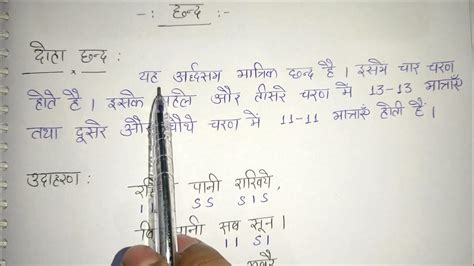 -: छन्द :-
दोहा छन्द :
यह अर्द्धसम मात्रिक छन्द है। इसमे चार चरण
होते है। इसके पहले और तीसरे चरण में 13-13 मात्राएँ
तथा दूसरे और चौथे चरण में 11-11 मात्राएँ होती है।
उदाहरण :
पानी राखिये,
II SS SIS
पानी सब सून।
II SI